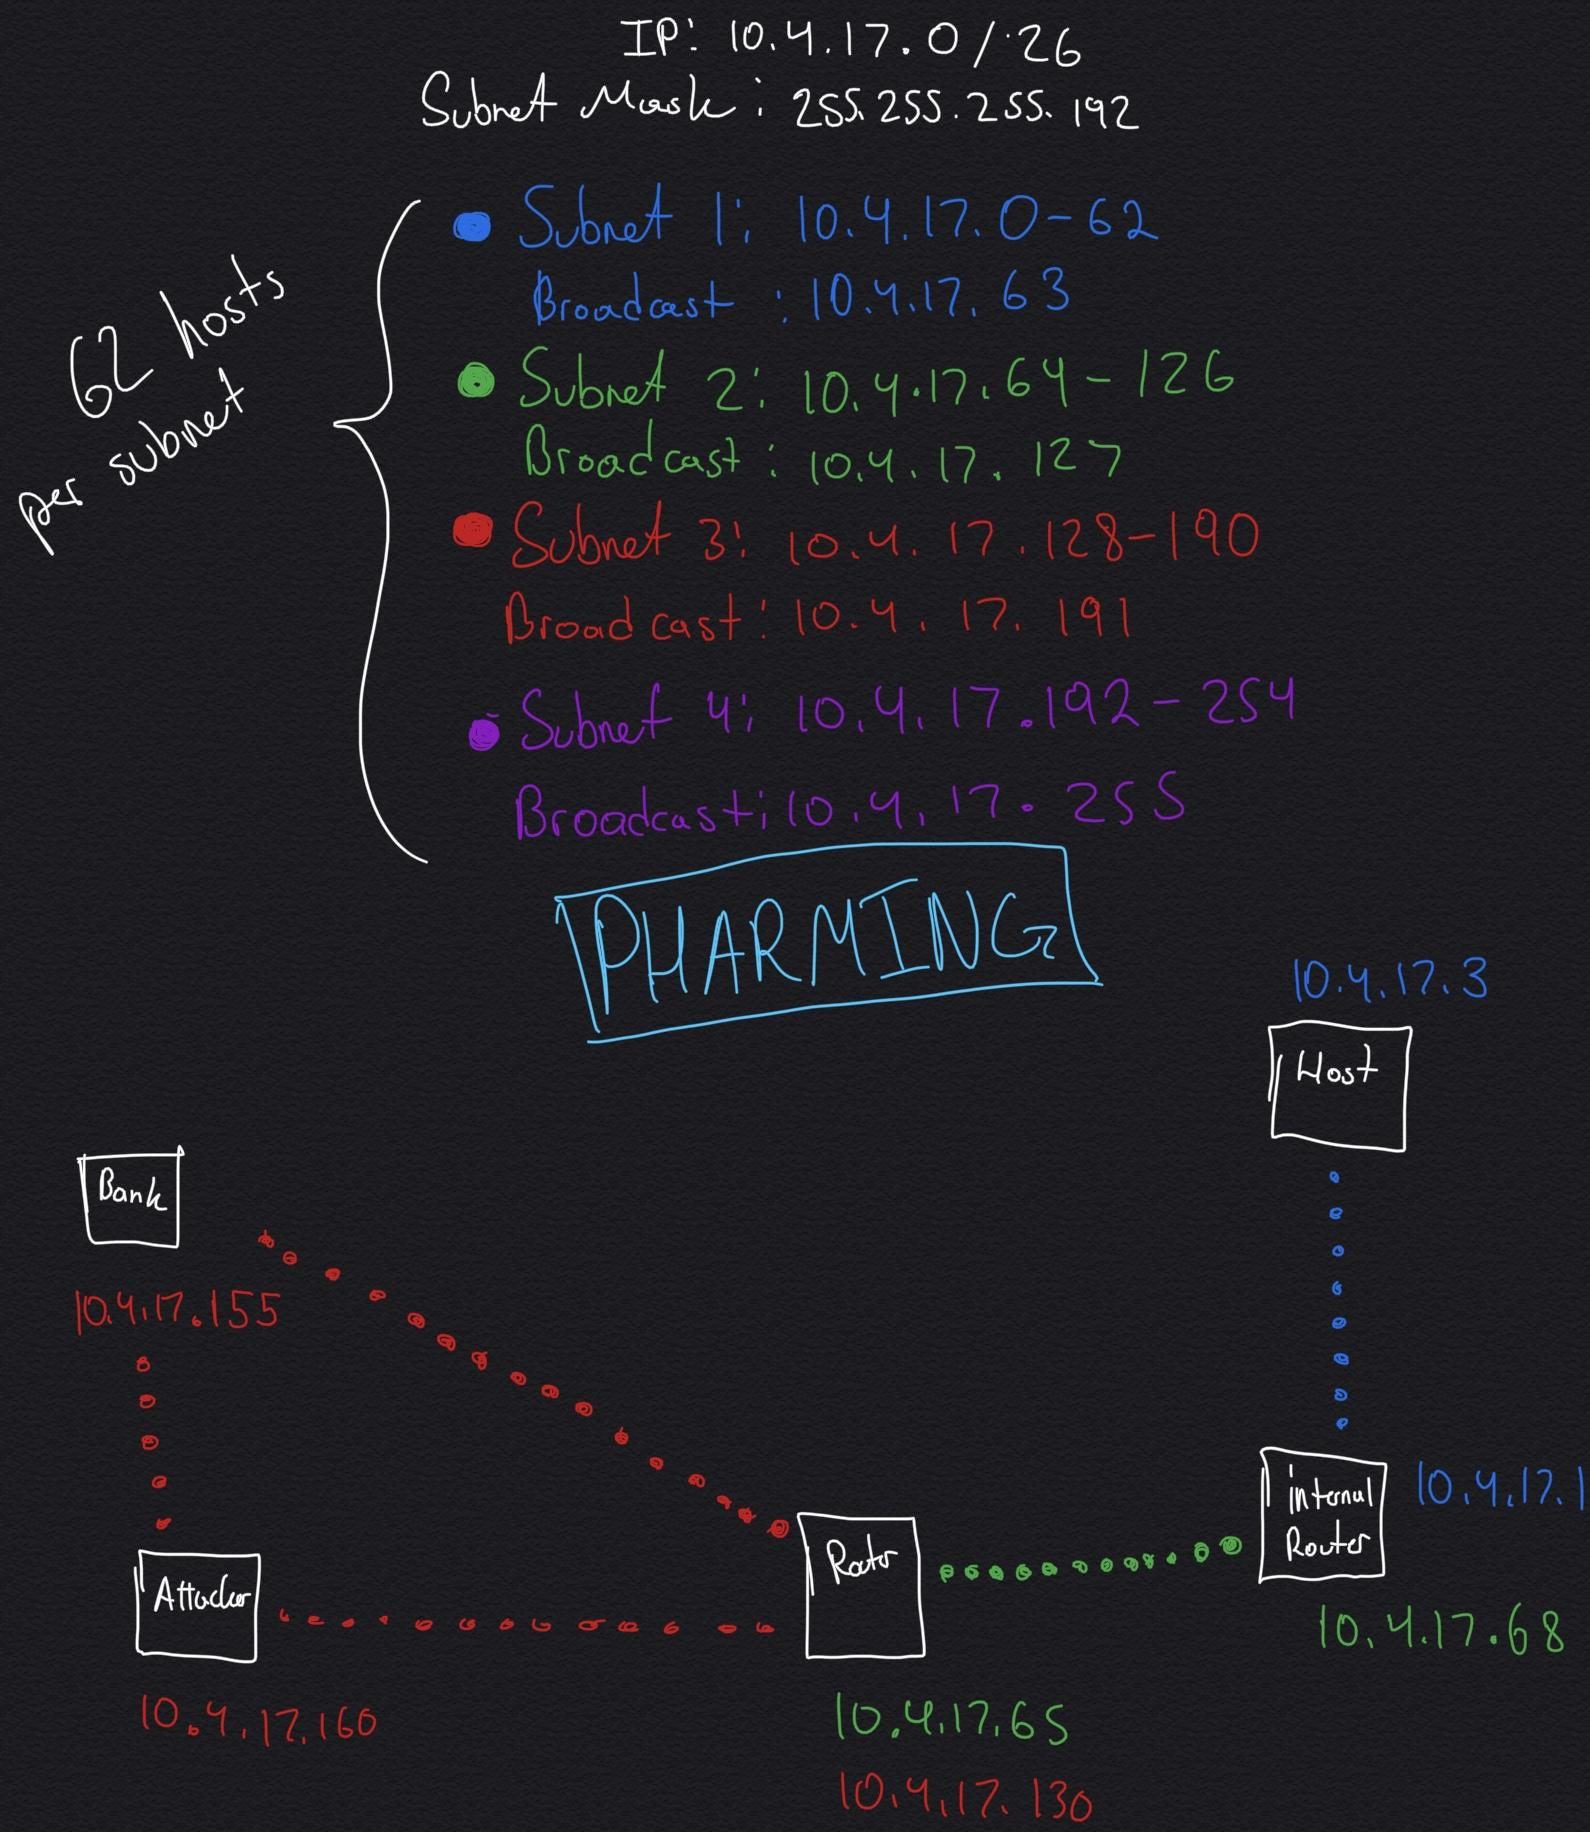 IP: 10.4.17.0/26
Subnet Mask: 255.255.255.192
62 hosts
per subnet
Subnet 1: 10.4.17.0-62
Broadcast: 10.4.17.63
Subnet 2: 10.4.17.64-126
Broadcast: 10.4.17.127
Subnet 3: 10.4.17.128-190
Broadcast: 10.4.17.191
Subnet 4: 10.4.17.192-254
Broadcast: 10.4.17.255
PHARMING
10.4.17.3
Host
Bank
10.4.17.155
internal
Router
10.4.17.1
Router
Attacker
10.4.17.68
10.4.17.160
10.4.17.65
10.4.17.130